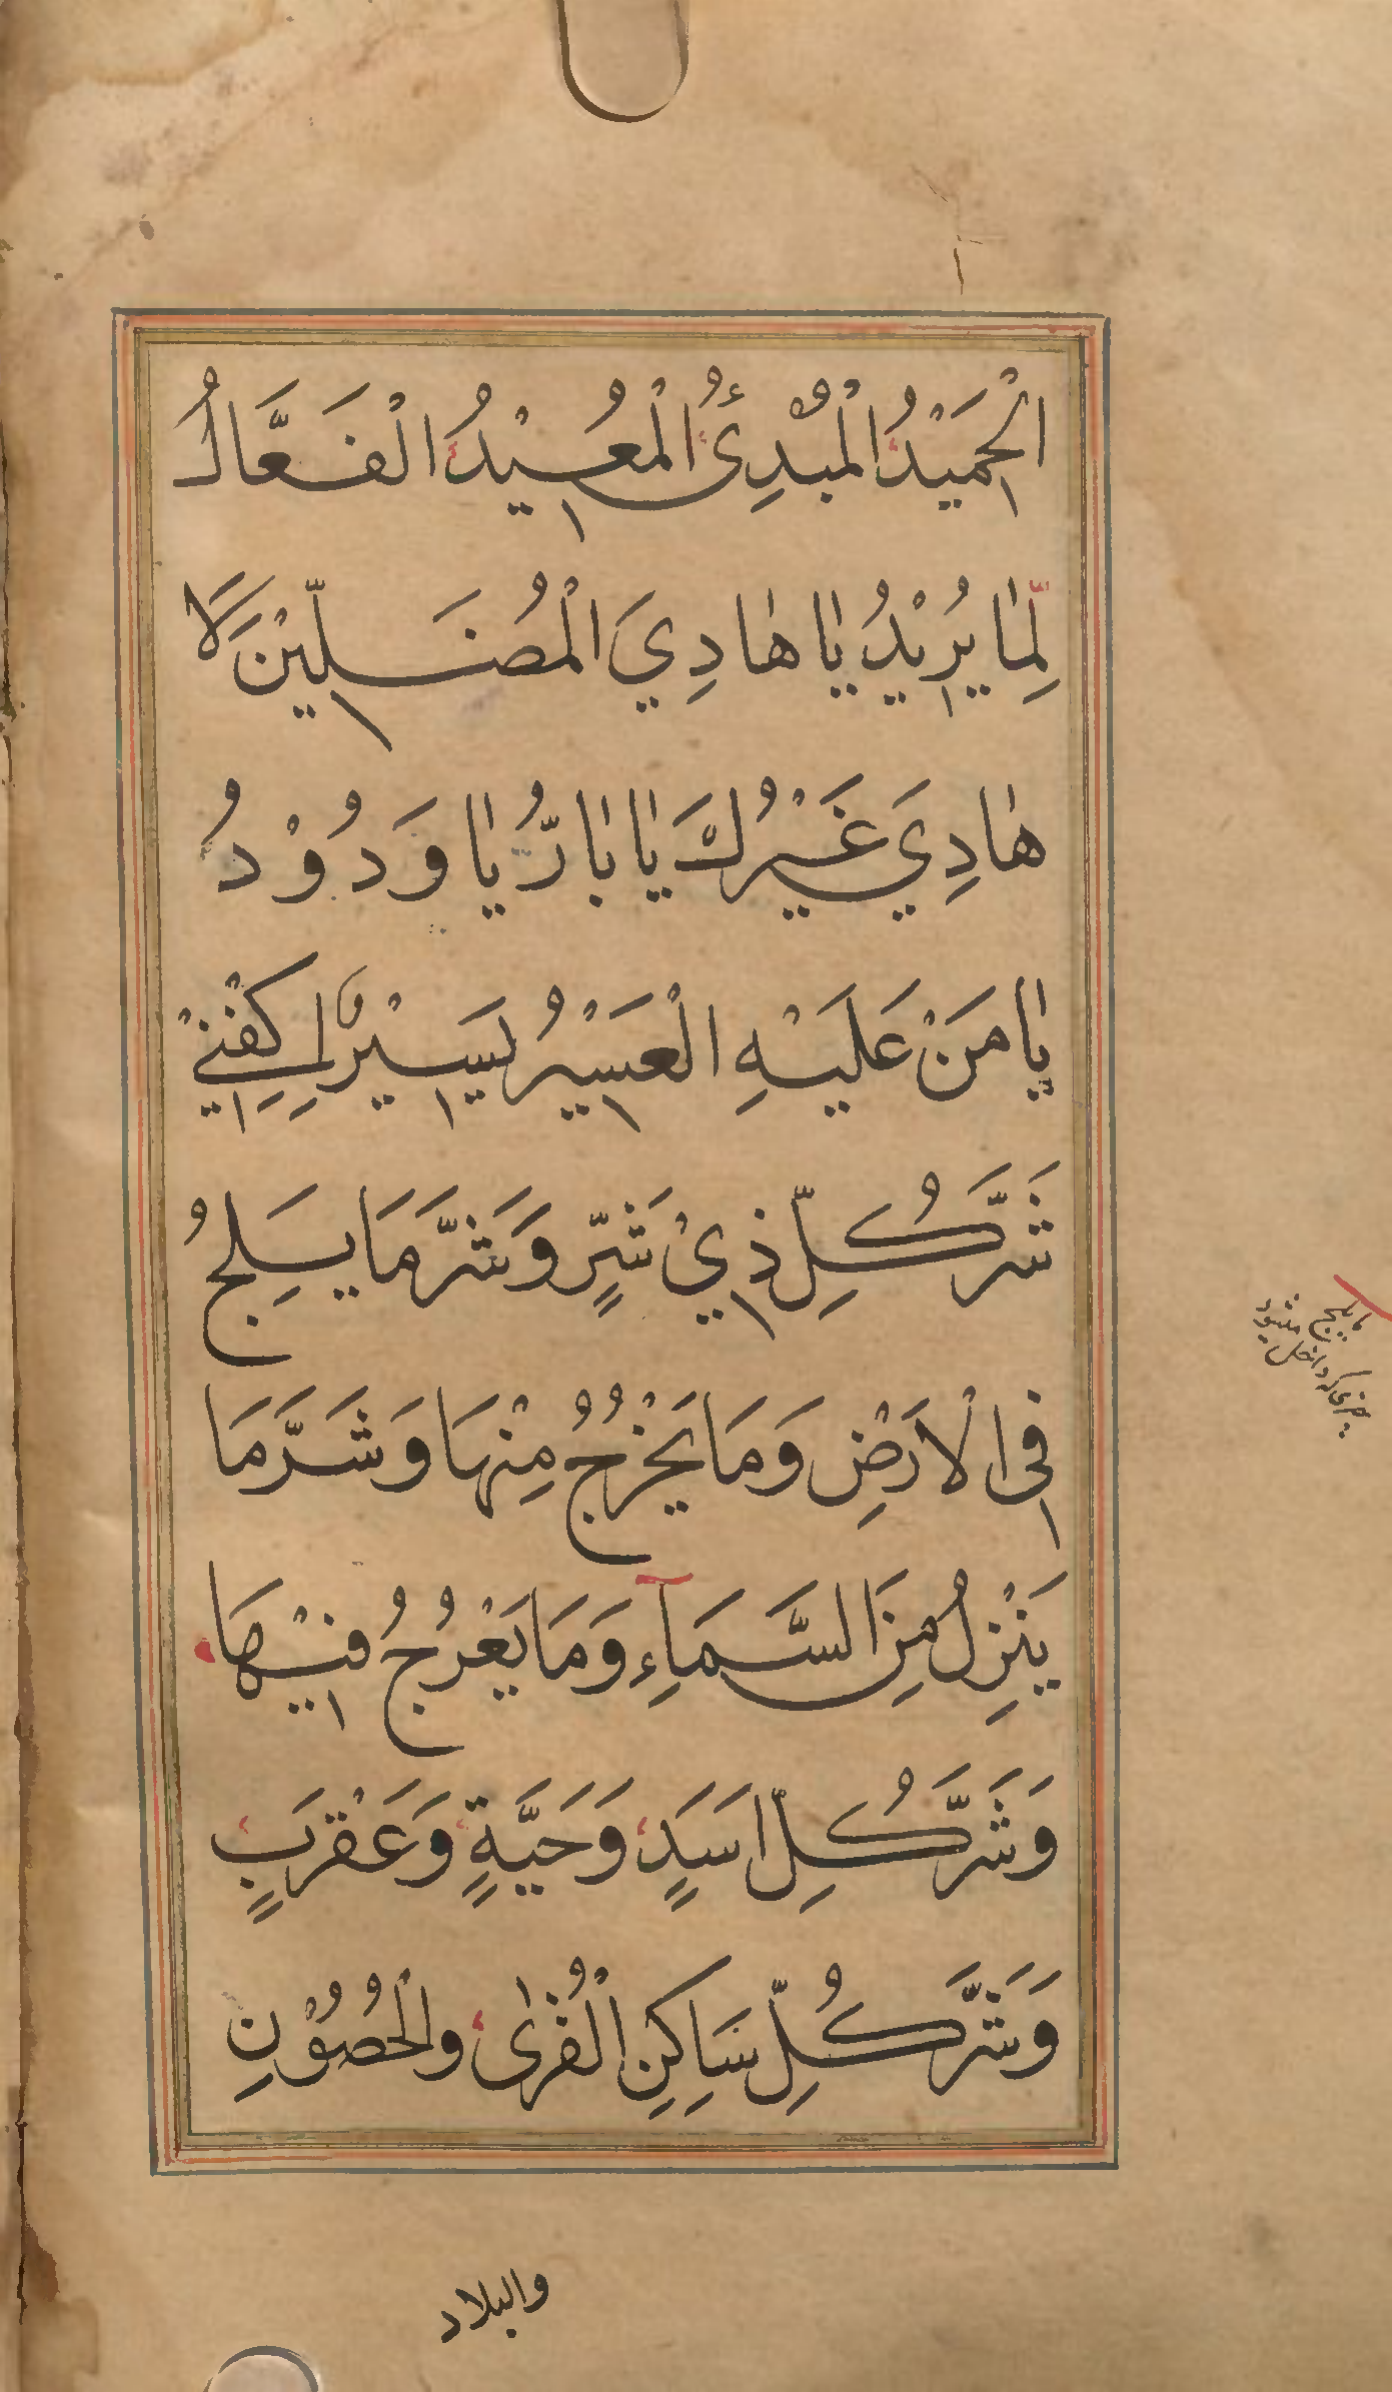 اَلْحَمِيْدُ الْمُبْدِئُ الْمُعِيْدُ الْفَعَّالُ
لِّمٰا يُرِيْدُ يٰا هٰادِيَ الْمُضَلِّيْنَ لَا
هٰادِيَ غَيْرُكَ يٰا بٰارُّ يٰا وَدُوْدُ
يٰا مَنْ عَلَيْهِ الْعَسْيِرُ يَسِيْرٌ اِكْفِنِيْ
شَرَّ كُلِّ ذِيْ شَرٍّ وَشَرَّ مَا يَلِجُ
فِى الْاَرْضِ وَمَا يَخْرُجُ مِنْهَا وَشَرَّ مَا
يَنْزِلُ مِنَ السَّمَآءِ وَمَا يَعْرُجُ فِيْهَا
وَشَرَّ كُلِّ اَسَدٍ وَحَيَّةٍ وَعَقْرَبٍ
وَشَرَّ كُلِّ سَاكِنِ الْقُرٰى والْحُصُوْنِ
والبلاد
ما يلج
داخل ميشود